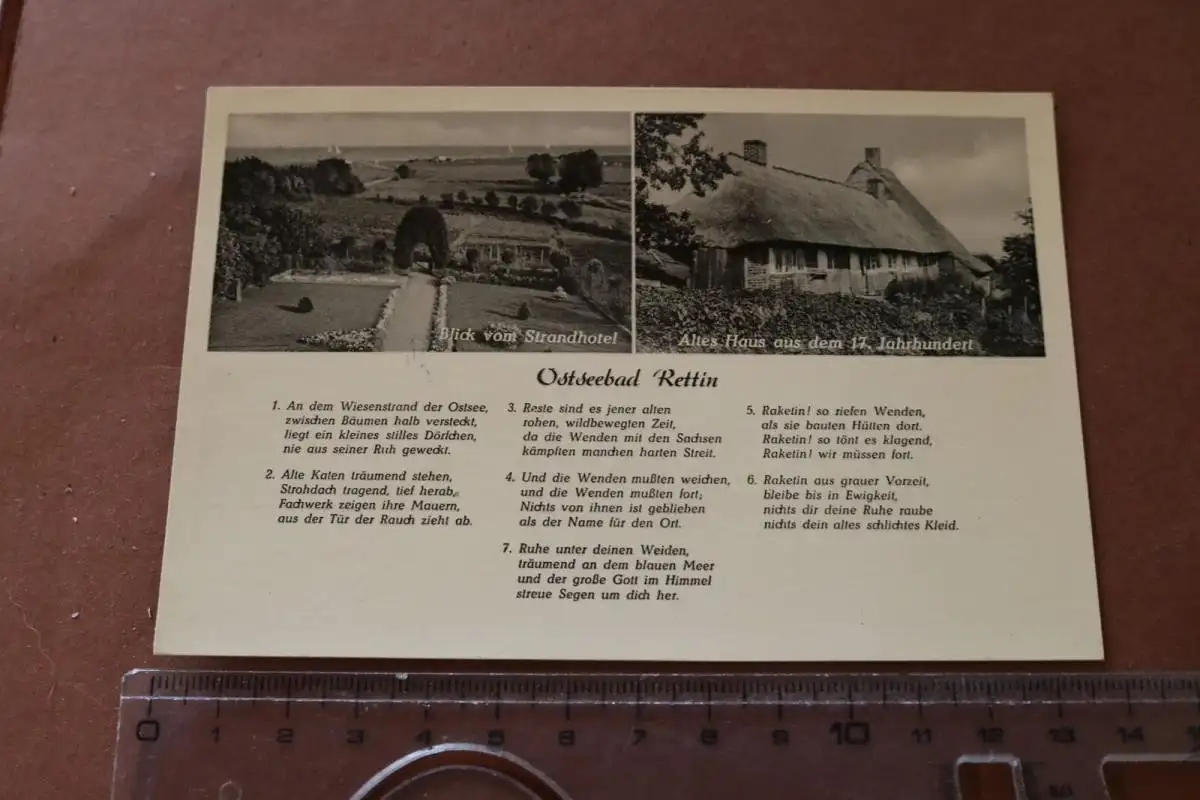 Blick vom Strandhotel
Altes Haus aus dem 17. Jahrhundert
Ostseebad Rettin
1. An dem Wiesenstrand der Ostsee,
zwischen Bäumen halb versteckt,
liegt ein kleines stilles Dörfchen,
nie aus seiner Ruh geweckt.
2. Alte Katen träumend stehen,
Strohdach tragend, tief herab,
Fachwerk zeigen ihre Mauern,
aus der Tür der Rauch zieht ab.
3. Reste sind es jener alten
rohen, wildbewegten Zeit,
da die Wenden mit den Sachsen
kämpften manchen harten Streit.
4. Und die Wenden mußten weichen,
und die Wenden mußten fort;
Nichts von ihnen ist geblieben
als der Name für den Ort.
5. Raketin! so riefen Wenden,
als sie bauten Hütten dort.
Raketin! so tönt es klagend,
Raketin! wir müssen fort.
6. Raketin aus grauer Vorzeit,
bleibe bis in Ewigkeit,
nichts dir deine Ruhe raube
nichts dein altes schlichtes Kleid.
7. Ruhe unter deinen Weiden,
träumend an dem blauen Meer
und der große Gott im Himmel
streue Segen um dich her.
0 1 2 3 4 5 6 7 8 9 10 11 12 13 14